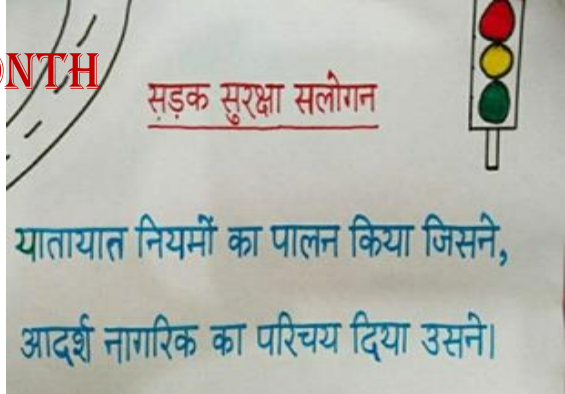 NTH
सड़क सुरक्षा सलोगन
यातायात नियमों का पालन किया जिसने,
आदर्श नागरिक का परिचय दिया उसने।